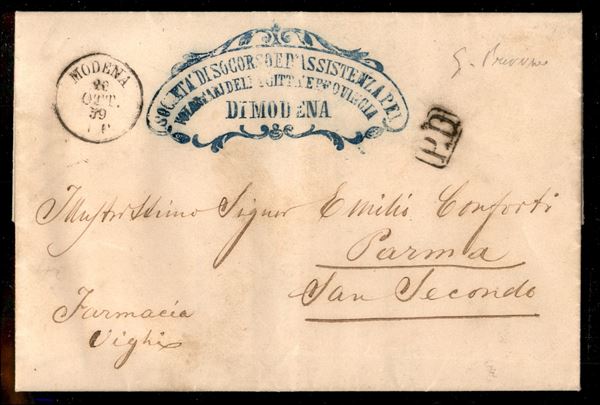 MODENA
26
OTT.
59
SOCIETÀ DI SOCORSO E D'ASSISTENZA PEI
VOLONTARI DELLA CITTÀ E PROVINCIA
DI MODENA
P.D.
Illustrissimo Signor Emilio Conforti
Parma
San Secondo
Farmacia
Vighi